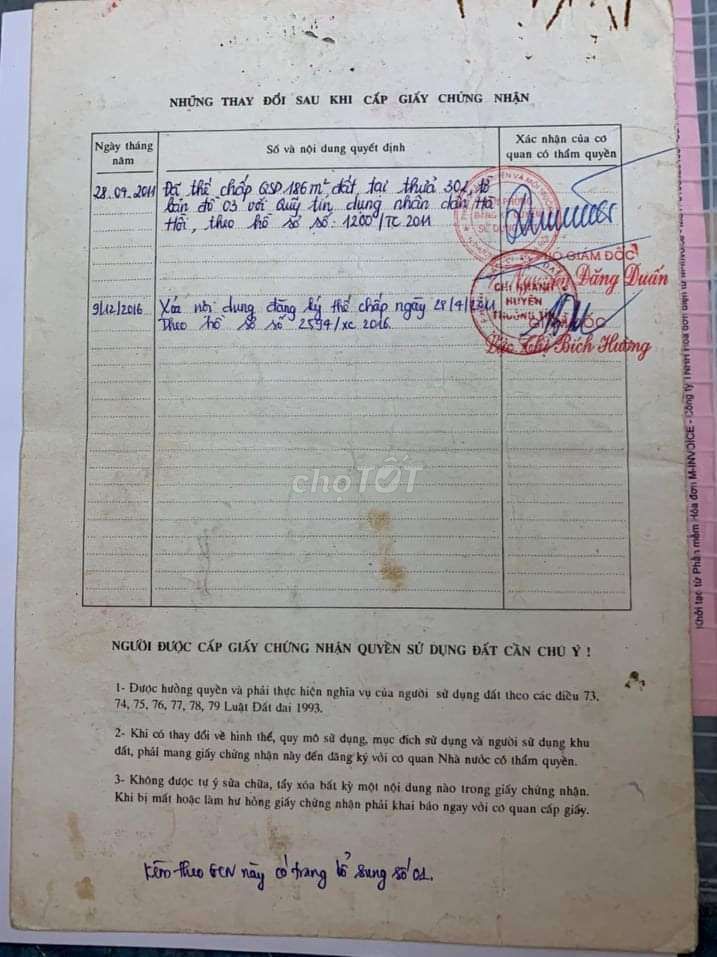 NHỮNG THAY ĐỔI SAU KHI CẤP GIẤY CHỨNG NHẬN
Ngày tháng năm
Số và nội dung quyết định
Xác nhận của cơ quan có thẩm quyền
28.04.2011
Đã thế chấp QSD 186m² đất, tại thửa 301, tờ
bản đồ 03 với Quỹ tín dụng nhân dân Hà
Hồi, theo hồ sơ số: 1200/TC 2011
GIÁM ĐỐC
Đăng Duấn
9/12/2016
Xóa nội dung đăng ký thế chấp ngày 28/4/2011
Theo hồ sơ số 2594/XC 2016.
CHI NHÁNH
HUYỆN
THƯỜNG TÍN
Thị Bích Hường
chợTỐT
NGƯỜI ĐƯỢC CẤP GIẤY CHỨNG NHẬN QUYỀN SỬ DỤNG ĐẤT CẦN CHÚ Ý !
1- Được hưởng quyền và phải thực hiện nghĩa vụ của người sử dụng đất theo các điều 73,
74, 75, 76, 77, 78, 79 Luật Đất đai 1993.
2- Khi có thay đổi về hình thể, quy mô sử dụng, mục đích sử dụng và người sử dụng khu
đất, phải mang giấy chứng nhận này đến đăng ký với cơ quan Nhà nước có thẩm quyền.
3- Không được tự ý sửa chữa, tẩy xóa bất kỳ một nội dung nào trong giấy chứng nhận.
Khi bị mất hoặc làm hư hỏng giấy chứng nhận phải khai báo ngay với cơ quan cấp giấy.
Kèm theo GCN này có trang bổ sung số 01.
Khởi tạo từ Phần mềm Hóa đơn M-INVOICE - Công ty TNHH Hóa đơn điện tử M-INVOICE